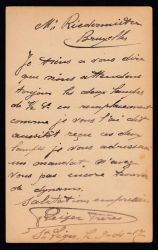 Mr Riedermeister
Bruxelles
Je tiens a vous dire
que nous attendons
toujours les deux lampes
de en remplacement
comme je vous l'ai dit
aussitot reçue ces deux
lampes je vous adresserai
un mandat, n'avez
vous pas encore trouvé
de dynamo.
Salutation empressée
Frères
St